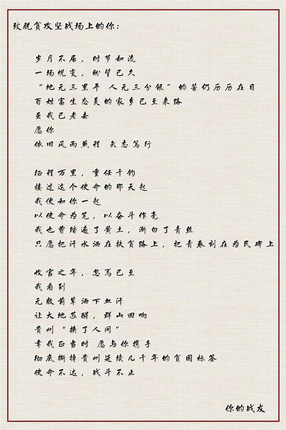 致脱贫攻坚战场上的你：
岁月不居，时节如流
一场蜕变，相望已久
“地无三里平 人无三分银”的苦仍历历在目
百姓富生态美的家乡已至来路
虽我已老去
愿你
依旧风雨兼程 矢志笃行
征程万里，重任千钧
接过这个使命的那天起
我便和你一起
以使命为笔，以奋斗作毫
我也曾踏遍了黄土，渐白了青丝
只愿把汗水洒在扶贫路上，把青春刻在为民碑上
收官之年，忽焉已至
我看到
无数前辈洒下血汗
让大地苏醒，群山回响
贵州“换了人间”
幸我正当时 愿与你携手
彻底撕掉贵州延续几千年的贫困标签
使命不达，战斗不止
你的战友